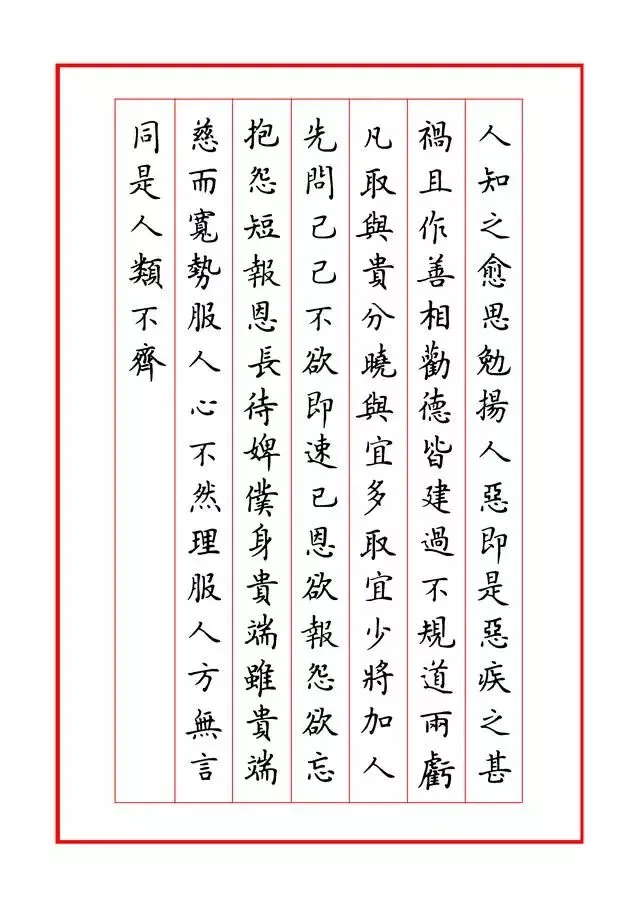 人知之愈思勉揚人惡即是惡疾之甚
禍且作善相勸德皆建過不規道兩虧
凡取與貴分曉與宜多取宜少將加人
先問己己不欲即速已恩欲報怨欲忘
抱怨短報恩長待婢僕身貴端雖貴端
慈而寬勢服人心不然理服人方無言
同是人類不齊